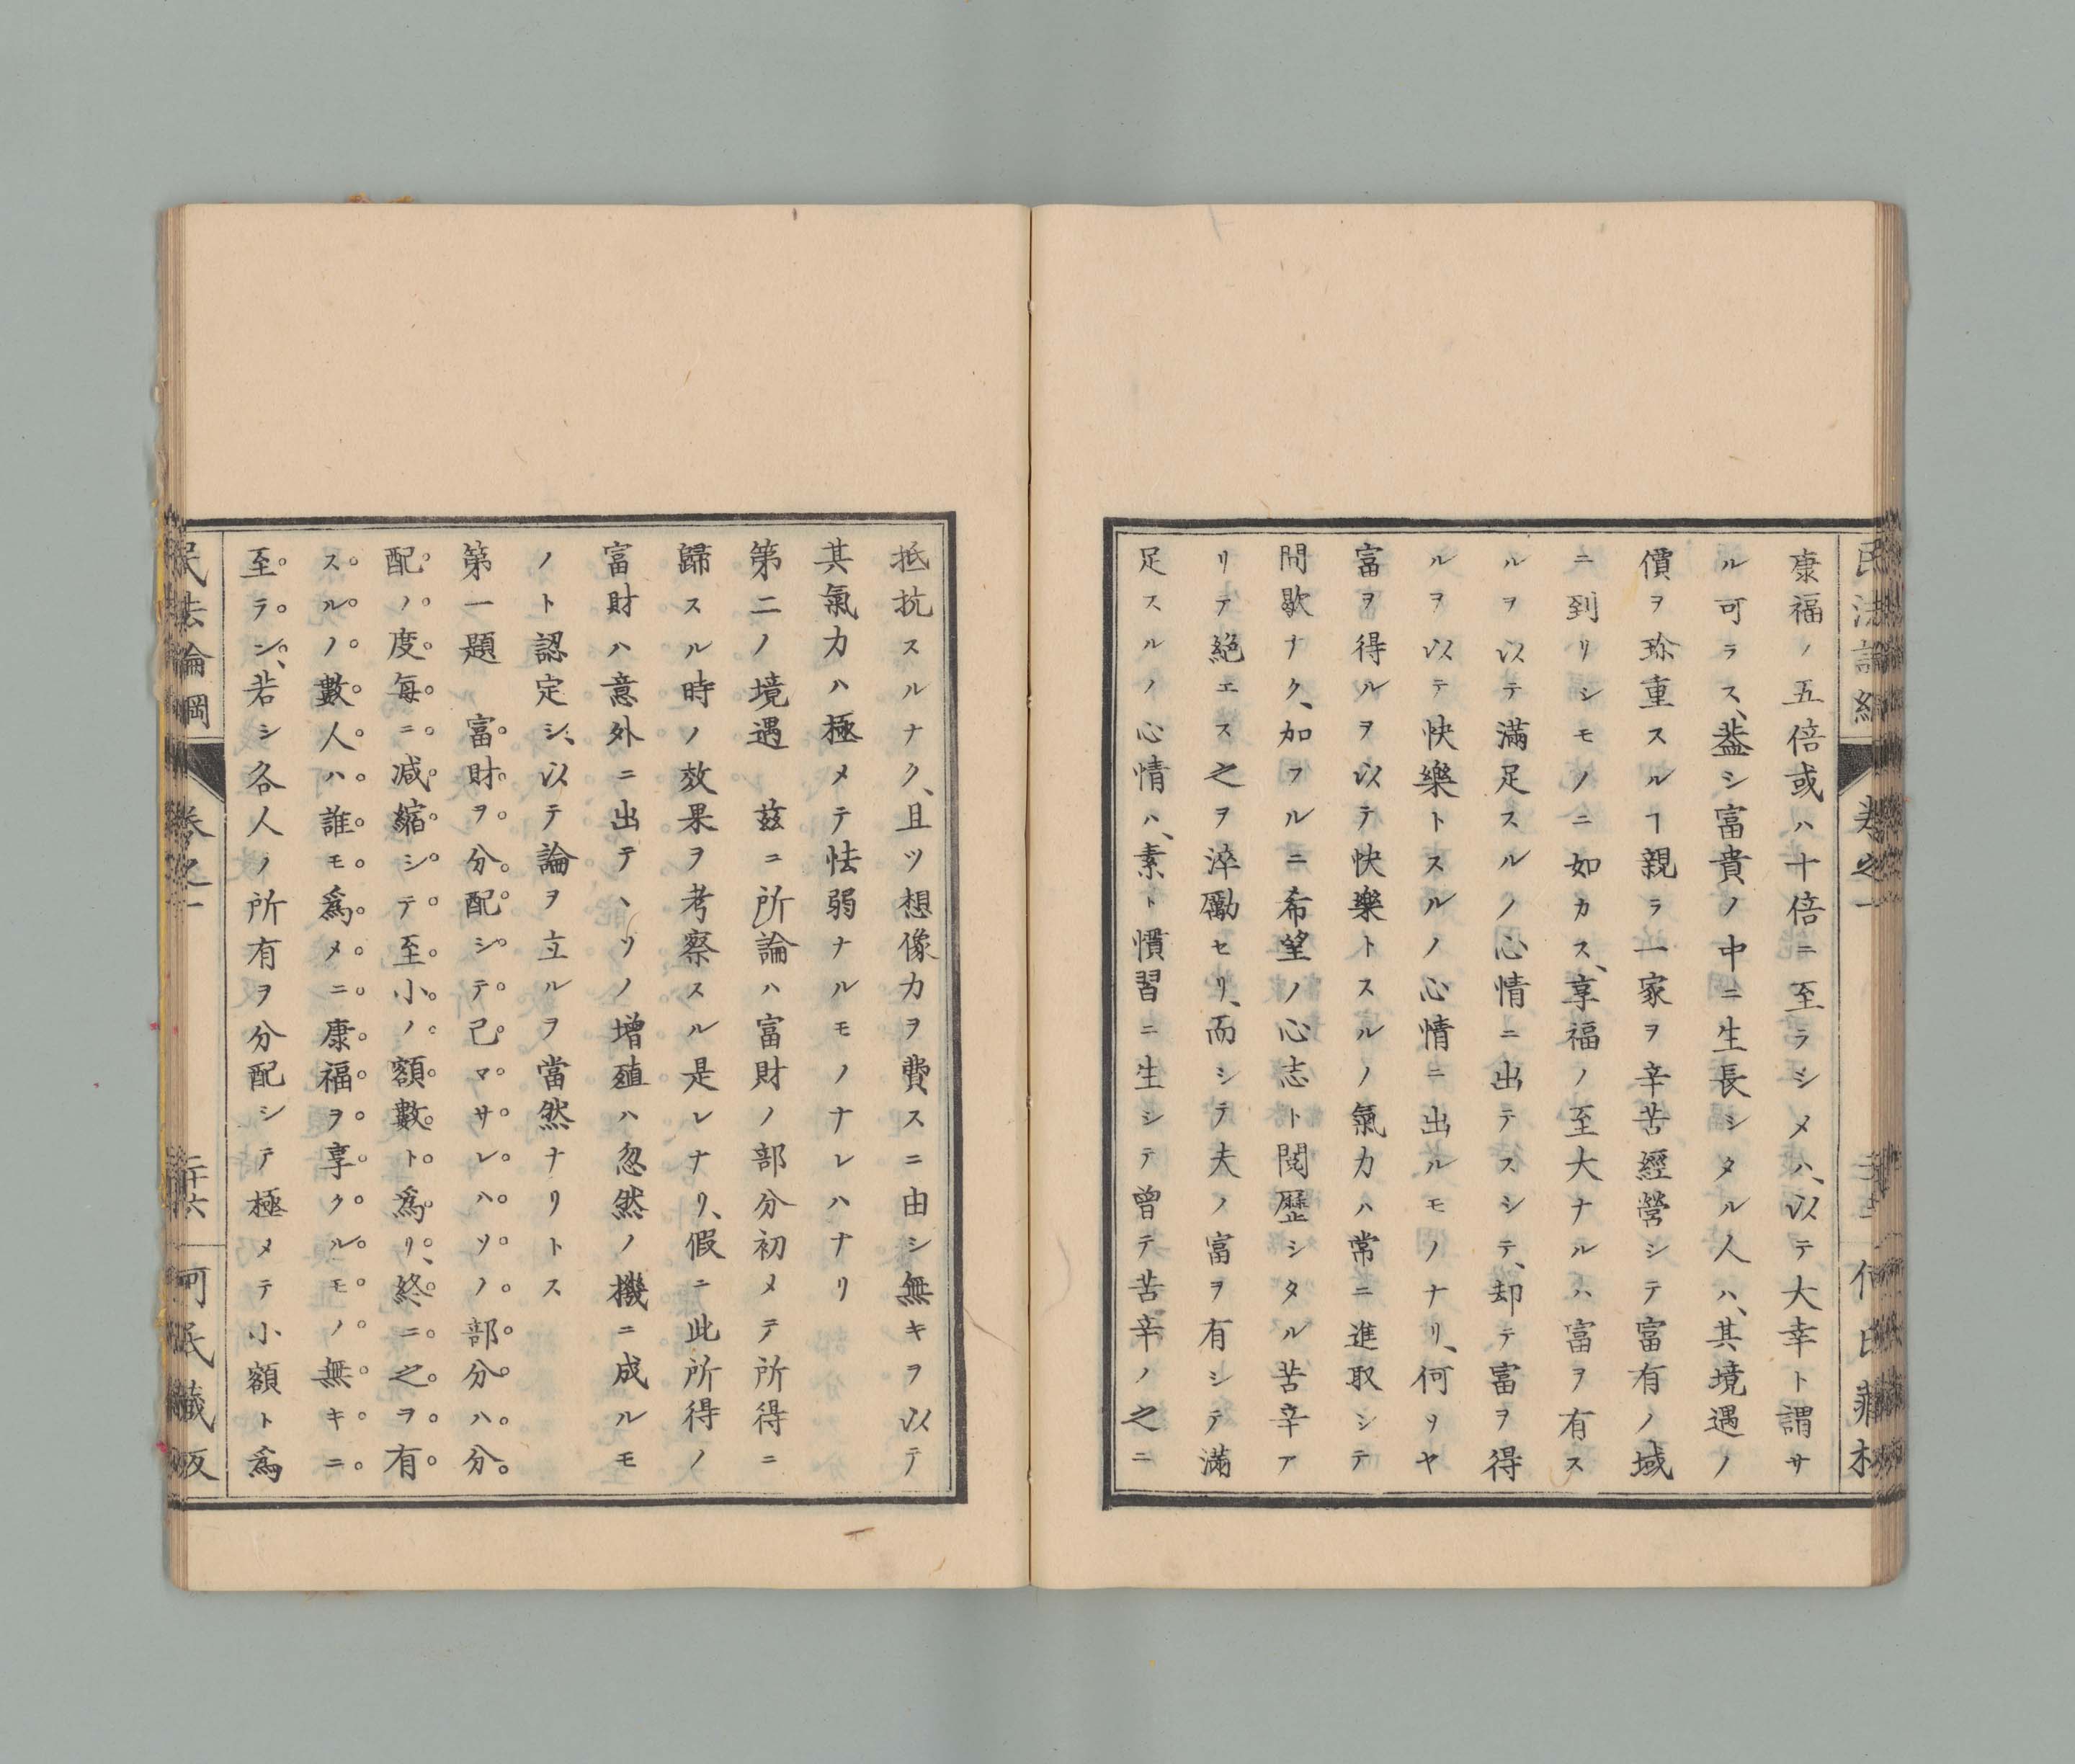 民法論綱
卷之一
康福ノ五倍或ハ十倍ニ至ラシメハ、以テ大幸ト謂サ
ル可ラス、蓋シ富貴ノ中ニ生長シタル人ハ、其境遇ノ
價ヲ珍重スルヿ親ラ一家ヲ辛苦經營シテ富有ノ域
ニ到リシモノニ如カス、享福ノ至大ナルハ富ヲ有ス
ルヲ以テ滿足スルノ心情ニ出テスシテ、却テ富ヲ得
ルヲ以テ快樂トスルノ心情ニ出ルモノナリ、何ヲヤ
富ヲ得ルヲ以テ快樂トスルノ氣力ハ常ニ進取シテ
間歇ナク、加フルニ希望ノ心志ト閲歷シタル苦辛ア
リテ絕エス之ヲ淬勵セリ、而シテ夫ノ富ヲ有シテ滿
足スルノ心情ハ、素ト慣習ニ生シテ曾テ苦辛ノ之ニ
抵抗スルナク、且ツ想像力ヲ費スニ由シ無キヲ以テ
其氣力ハ極メテ怯弱ナルモノナレハナリ
第二ノ境遇 茲ニ所論ハ富財ノ部分初メテ所得ニ
歸スル時ノ效果ヲ考察スル是レナリ、假ニ此所得ノ
富財ハ意外ニ出テヽソノ增殖ハ忽然ノ機ニ成ルモ
ノト認定シ、以テ論ヲ立ルヲ當然ナリトス
第一題 富財ヲ分配シテ已マサレハソノ部分ハ分
配ノ度每ニ減縮シテ至小ノ額數ト爲リ、終ニ之ヲ有
スルノ數人ハ誰モ爲メニ康福ヲ享クルモノ無キニ
至ラン、若シ各人ノ所有ヲ分配シテ極メテ小額ト爲
民法論綱
卷之一
二十六
何氏藏版